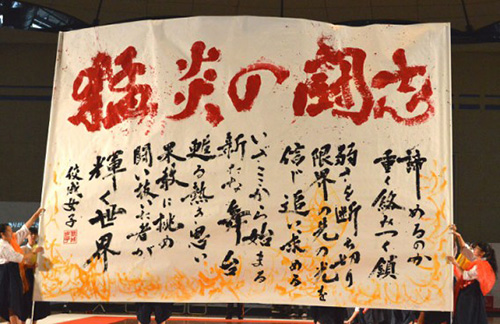 猛炎の闘志
諦めるのか
重く絡みつく鎖
弱さを断ち切り
限界の先の光を
信じ追い求める
いざここから始まる
新たな舞台
迸る熱き思い
果敢に挑め
闘い抜いた者が
輝く世界
佼成女子